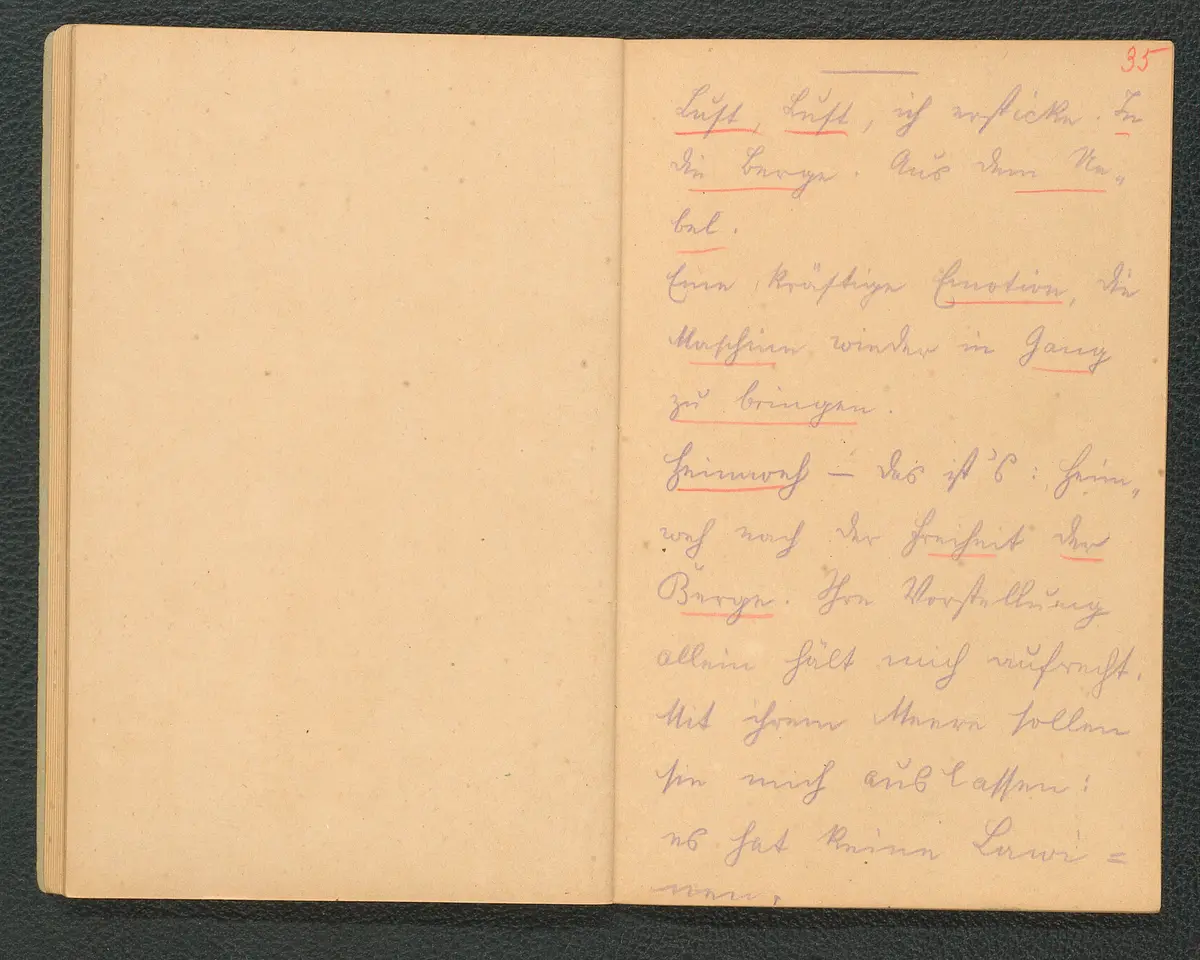 35
Luft, Luft, ich ersticke. In
die Berge. Aus dem Ne„
bel.
Eine kräftige Emotion, die
Maschine wieder in Gang
zu bringen.
Heimweh – das ist's: Heim„
weh nach der Freiheit der
Berge. Ihre Vorstellung
allein hält mich aufrecht.
Mit ihrem Meere sollen
sie mich auslassen:
es hat keine Lawi=
nen.